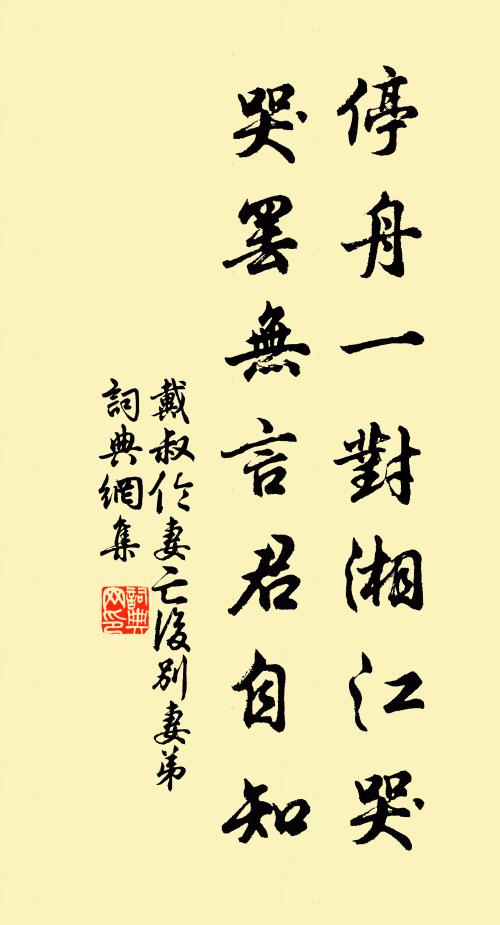 停舟一對湘江哭
哭罷無言君自知
戴叔伦妻亡後別妻弟
詞典網集
詞典网印